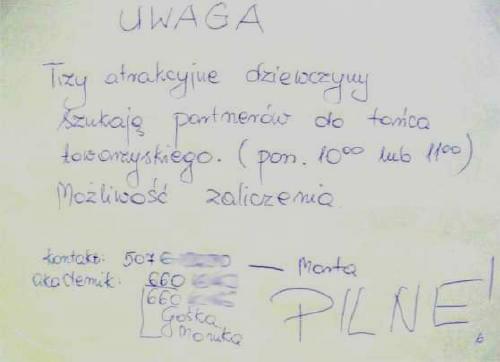 UWAGA
Trzy atrakcyjne dziewczyny
szukają partnerów do tańca
towarzyskiego. (pon. 10⁰⁰ lub 11⁰⁰)
Możliwość zaliczenia
kontakt: 507 — Marta
akademik: 660
660
Gośka
Monika
PILNE!